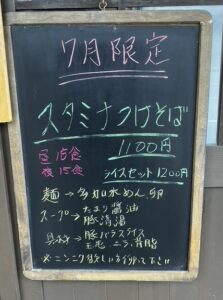 7月限定
スタミナつけそば
1100円
昼15食
夜15食
ライスセット1200円
麺→多加水めん
スープ→たまり醤油
豚清湯
具材→豚バラスライス
玉ネギ ニラ、背脂
※ニンニク
下さい